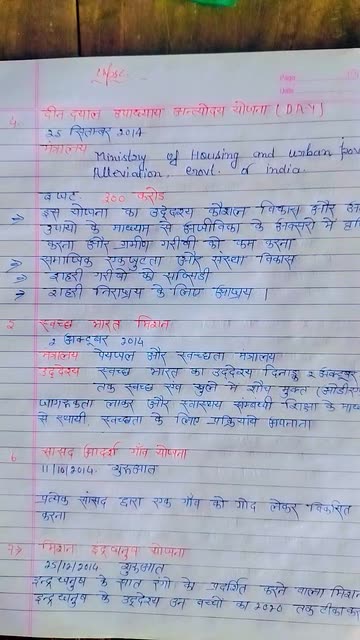 Page
Date
4. दीन दयाल उपाध्याय अन्त्योदय योजना (DAY)
25 सितम्बर 2014
मंत्रालय
Ministry of Housing and urban pov
Alleviation. Govt. of india.
बजट 500 करोड
⇒ इस योजना का उद्देश्य कौशल विकास और अ
उपायो के माध्यम से आजीविका के अवसरो में
करना और ग्रामीण गरीबी को कम करना
⇒ समाजिक एकजुटता और संस्था विकास
⇒ शहरी गरीबो को सब्सिडी
⇒ शहरी निराश्रय के लिए आश्रय।
स्वच्छ भारत मिशन
2 अक्टूबर 2014
मंत्रालय पेयजल और स्वच्छता मंत्रालय
उद्देश्य स्वच्छ भारत का उद्देश्य दिनाङ्क 2 अक्टूबर
तक स्वच्छ एवं खुले में शौच मुक्त (ओडीए
जागरूकता लाकर और स्वास्थय सम्बंधी शिक्षा के माध
से स्थायी स्वच्छता के लिए अपनाना
6 सांसद आदर्श गाँव योजना
11/10/2014. शुरुआत
प्रत्येक सांसद द्वारा एक गाँव को गोद लेकर विकसित
करना
7⇒ मिशन इन्द्रधनुष योजना
25/12/2014 शुरुआत
इन्द्रधनुष के सात रंगो को प्रदर्शित करने वाला मिशन
इन्द्रधनुष के उद्देश्य उन बच्चो का 2020 तक टीकाकर